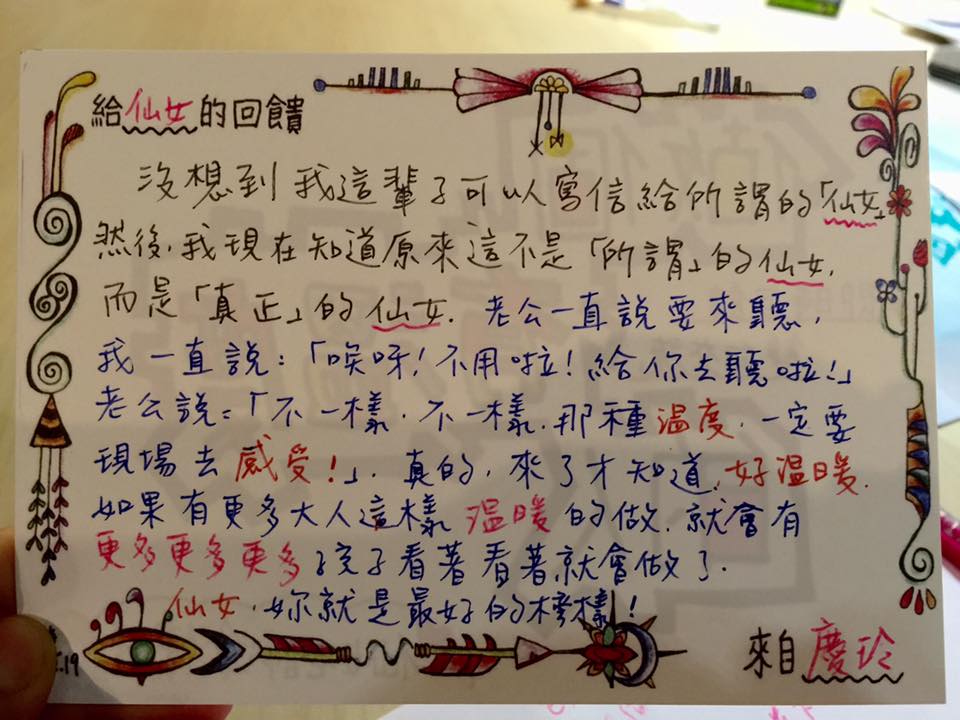 給仙女的回饋
沒想到我這輩子可以寫信給所謂的「仙女」
然後,我現在知道原來這不是「所謂」的仙女,
而是「真正」的仙女. 老公一直說要來聽,
我一直說:「唉呀!不用啦!給你去聽啦!」
老公說:「不一樣.不一樣.那種溫度.一定要
現場去感受!」. 真的,來了才知道,好溫暖.
如果有更多大人這樣溫暖的做.就會有
更多更多更多孩子看著看著就會做了.
仙女.妳就是最好的榜樣!
來自慶玲
.19